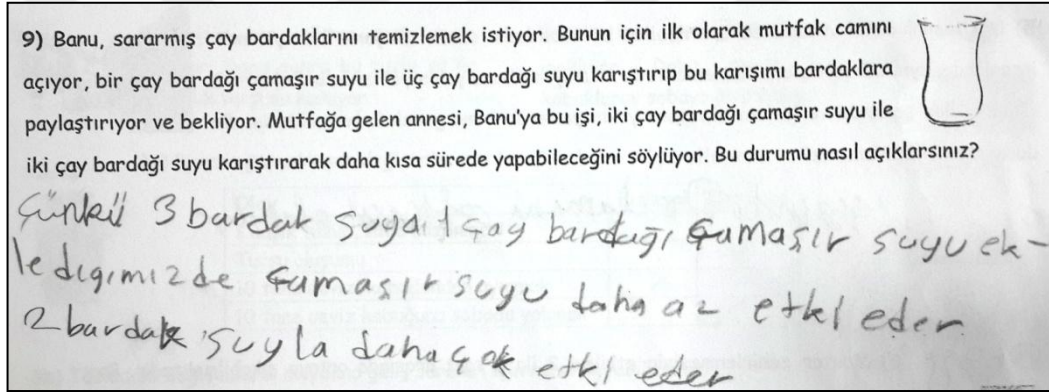 9) Banu, sararmış çay bardaklarını temizlemek istiyor. Bunun için ilk olarak mutfak camını
açıyor, bir çay bardağı çamaşır suyu ile üç çay bardağı suyu karıştırıp bu karışımı bardaklara
paylaştırıyor ve bekliyor. Mutfağa gelen annesi, Banu'ya bu işi, iki çay bardağı çamaşır suyu ile
iki çay bardağı suyu karıştırarak daha kısa sürede yapabileceğini söylüyor. Bu durumu nasıl açıklarsınız?
Çünkü 3 bardak suya 1 çay bardağı çamaşır suyu ek-
lediğimizde çamaşır suyu daha az etki eder
2 bardak suyla daha çok etki eder